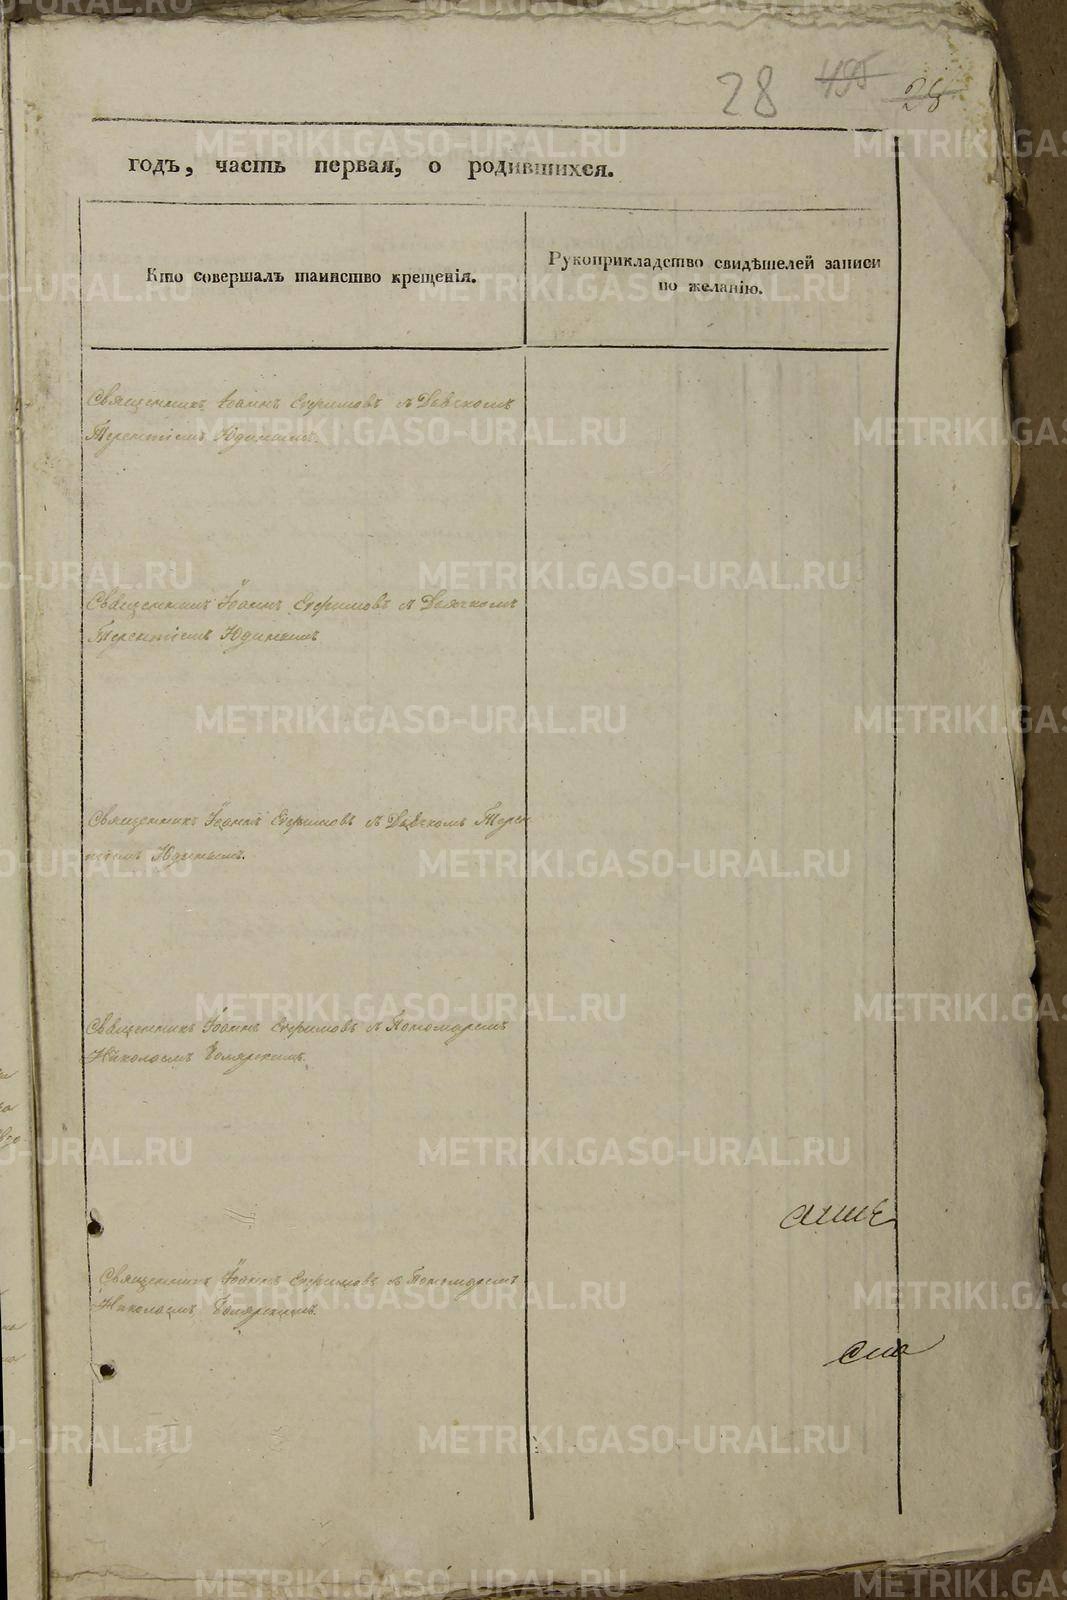 28 495 28
годъ, часть первая, о родившихся.
Кто совершалъ таинство крещенія.
Рукоприкладство свидѣтелей записи
по желанію.
Священникъ Іоаннъ Ефимовъ съ Дьячкомъ
Терентіемъ Юдинымъ.
Священникъ Іоаннъ Ефимовъ съ Дьячкомъ
Терентіемъ Юдинымъ
Священникъ Іоаннъ Ефимовъ съ Дьячкомъ Терен
тіемъ Юдинымъ.
Священникъ Іоаннъ Ефимовъ съ Пономаремъ
Николаемъ Боярскимъ.
Священникъ Іоаннъ Ефимовъ съ Пономаремъ
Николаемъ Боярскимъ.
METRIKI.GASO-URAL.RU